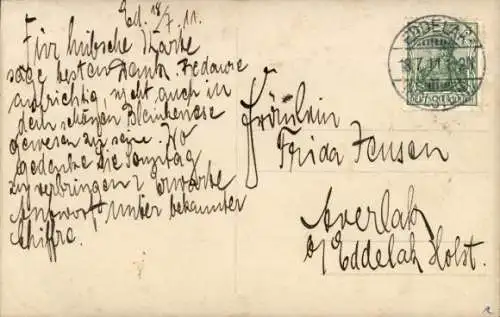 Ed. 18/7.11.
Für hübsche Karte
sage besten Dank. Bedaure
aufrichtig, nicht auch in
dem schönen Blankenese
gewesen zu sein. Wo
gedenke Sie Sonntag
zu verbringen? Erwarte
Antwort unter bekannter
Chiffre.
EDDELAK
18.7.11
Fräulein
Frida Jensen
Averlak
b/ Eddelak Holst.